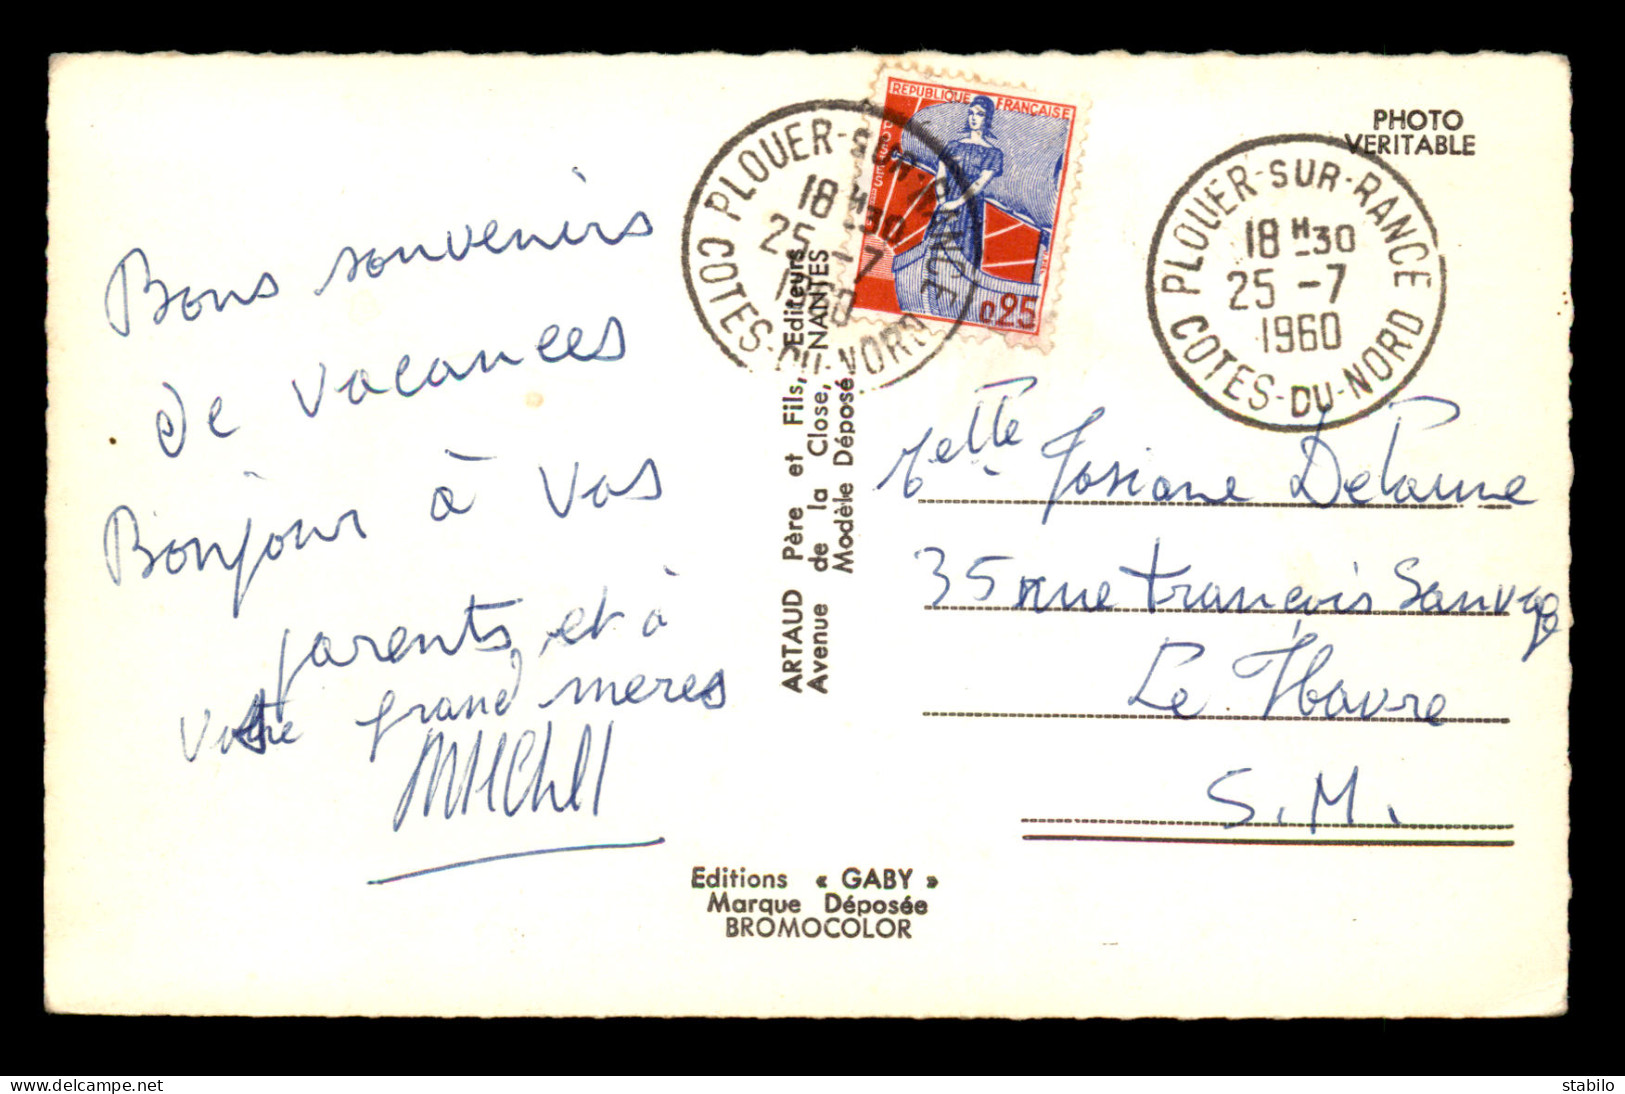 Bons souvenirs
de vacances
Bonjour à vos
parents, et à
votre grand mères
Michel
Editions « GABY »
Marque Déposée
BROMOCOLOR
ARTAUD Père et Fils, Editeurs
Avenue de la Close, NANTES
Modèle Déposé
REPUBLIQUE FRANÇAISE
POSTES
0,25
PLOUER-SUR-RANCE
18 H 30
25 -7
1960
COTES-DU-NORD
PHOTO
VERITABLE
PLOUER-SUR-RANCE
18 H 30
25 -7
1960
COTES-DU-NORD
Melle Josiane
35 rue François Sauvage
Le Havre
S.M.
stabilo